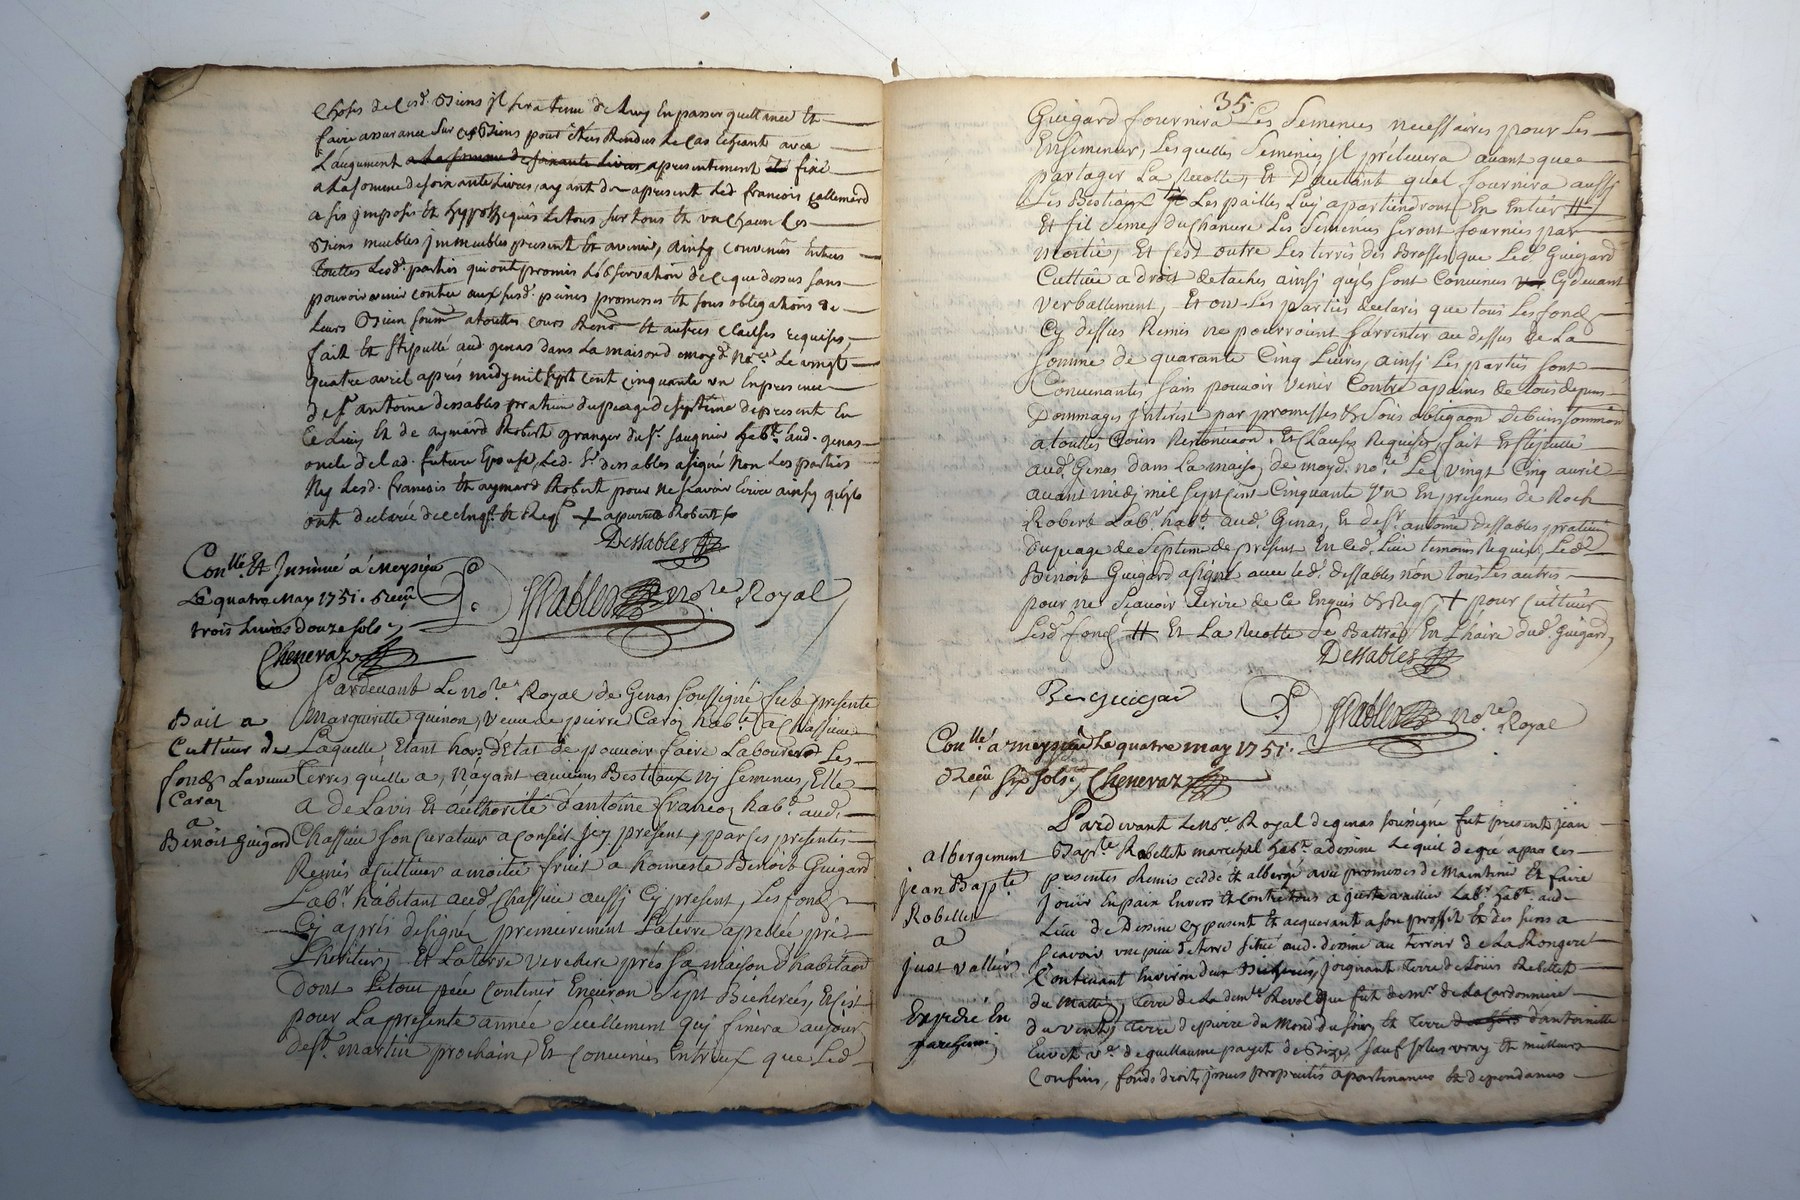 choses desd. Biens jl sera tenu de luy En passer quittance Et
faire assurance sur ces Biens pour Etre Rendus le cas Echeant avec
Laugument a la somme de soixante livres apresentement et fixé
a la somme de soixante Livres, ayant des apresent led francois
assis jmposés Et hypothequés Letout sur tous Et un chacun Les
Biens meubles jmmeubles present Et avenir, ainsy convenues Entres
touttes Lesd. parties qui ont promis L'observation de ce que dessus sans
pouvoir venir contre aux susd. peines promesses Et sous obligations de
Leurs Bien soum. atouttes cours Reno. Et autres clauses requises,
fait Et stipullé aud genas dans La maison de moyd. no.re Le vingt
quatre avril apres midy mil sept cent cinquante un En presence
de s.r antoine dessables praticien du peage de septême de present En
ce Lieu Et de aymard Robert granger du s.r saugnier hab.t aud. genas
oncle de lad. future Epouse, Led. s.r dessables a signé non Les parties
Ny Lesd. francois Et aymard Robert pour ne scavoir Ecrire ainsy qu'ils
ont declaré de ce Enq.s Et Req.s + Robert
Dessables
Con.llé Et Insinué á Meysieu
Le quatre May 1751. Receu
trois Livres douze sols
Dessables no.re Royal
Chenevaz
Pardevant Le no.re Royal de Genas soussigné fut presente
Bail a
Cultiver de
fonds La veuve
Caraz
a
Benoit Guigard
Margueritte guinon, veuve de pierre Caraz hab.te a Chassieu
Laquelle Etant hors d'Etat de pouvoir faire Labourer Les
terres qu'elle a, N'ayant aucuns Bestiaux Ny semences, Elle
a de Lavis Et authorité d'antoine francoz hab.t aud.
Chassieu son Curateur a conseil jcy present, par ces presentes
Remis a Cultiver a moitié fruit a honneste Benoit Guigard
Lab.r habitant aud. Chassieu aussi Cy present, Les fonds
Cy aprés designés premierement La terre apellée pré
L'heritier, Et La terre verchere prés sa maison d'habitaon
dont Letout peu contenir Environ sept Bicherées, Et c'est
pour La presente année seullement qui finira au jour
de s.t martin prochain, Et convenus Entr'eux que Led
35.
Guigard fournira Les semences necessaires pour Les
Ensemencer, Lesquelles semences jl prélevera avant que
partager La Recolte, Et D'autant quil fournira aussi
Les Bestiaux Les pailles Luy apartiendront En Entier #
Et s'il semes du Chanvre Les semences seront fournies par
moitié, Et c'est outre Les terres des Brosses que Led. Guigard
Cultive a droit de taches ainsi qu'ils sont Convenus Cy devant
verballement, Et ont Les parties declarés que tous Les fonds
Cy dessus Remis ne pourroient s'arrenter au dessus de La
somme de quarante Cinq Livres, ainsi Les parties sont
Convenantes sans pouvoir venir Contre a peines de tous depens
Dommages jnterest par promesses & sous obligaon de biens soumission
a touttes Cours Renonciaon. Et Clauses Requises, fait Et stipullé
aud. Genas dans La maison de moyd. no.re Le vingt Cinq avril
avant midy mil sept cent Cinquante Un En presence de Roch
Robert Lab.r hab.t aud. Genas, Et de s.r antoine dessables praticien
du peage de Septême de present En ced. Lieu temoins Requis, Led.
Benoit Guigard a signé avec led. dessables non tous Les autres
pour ne sçavoir Ecrire de ce Enquis & Req. + pour Cultiver
Lesd. fonds # Et La Recolte se Battra En L'haire dud. Guigard
Dessables
Be guigar
Dessables no.re Royal
Con.llé a meysieu Le quatre may 1751.
Receu six sols. Chenevaz
Pardevant Le no.re Royal de genas soussigné fut present jean
albergement
jean Bapt.e
Robellet
a
just vallier
Expedié En
parchemin
Bap.te Robellet marechal hab.t a dessine Lequel de gré a par ces
presentes Remis ceddé Et albergé avec promesses de Maintenir Et faire
jouir En paix Envers Et contre tous a just vallier Lab.r hab.t aud.
Lieu de Dessine cy present Et acquerant a son proffit Et des siens a
scavoir une piece de terre situé aud. dessine au terroir de La Rongere
Contenant Environ deux Bicherées, joignant terre de Louis Robellet
du Matin, terre de La dem.lle Revol que fut de m.r de La Cardonniere
du vent, terre de pierre du Mond du soir, Et terre d'antoinette
v.e de guillaume payet de Bize, sauf plus vray Et meilleurs
Confins, fonds droits jssues proprietés apartenances Et dependances